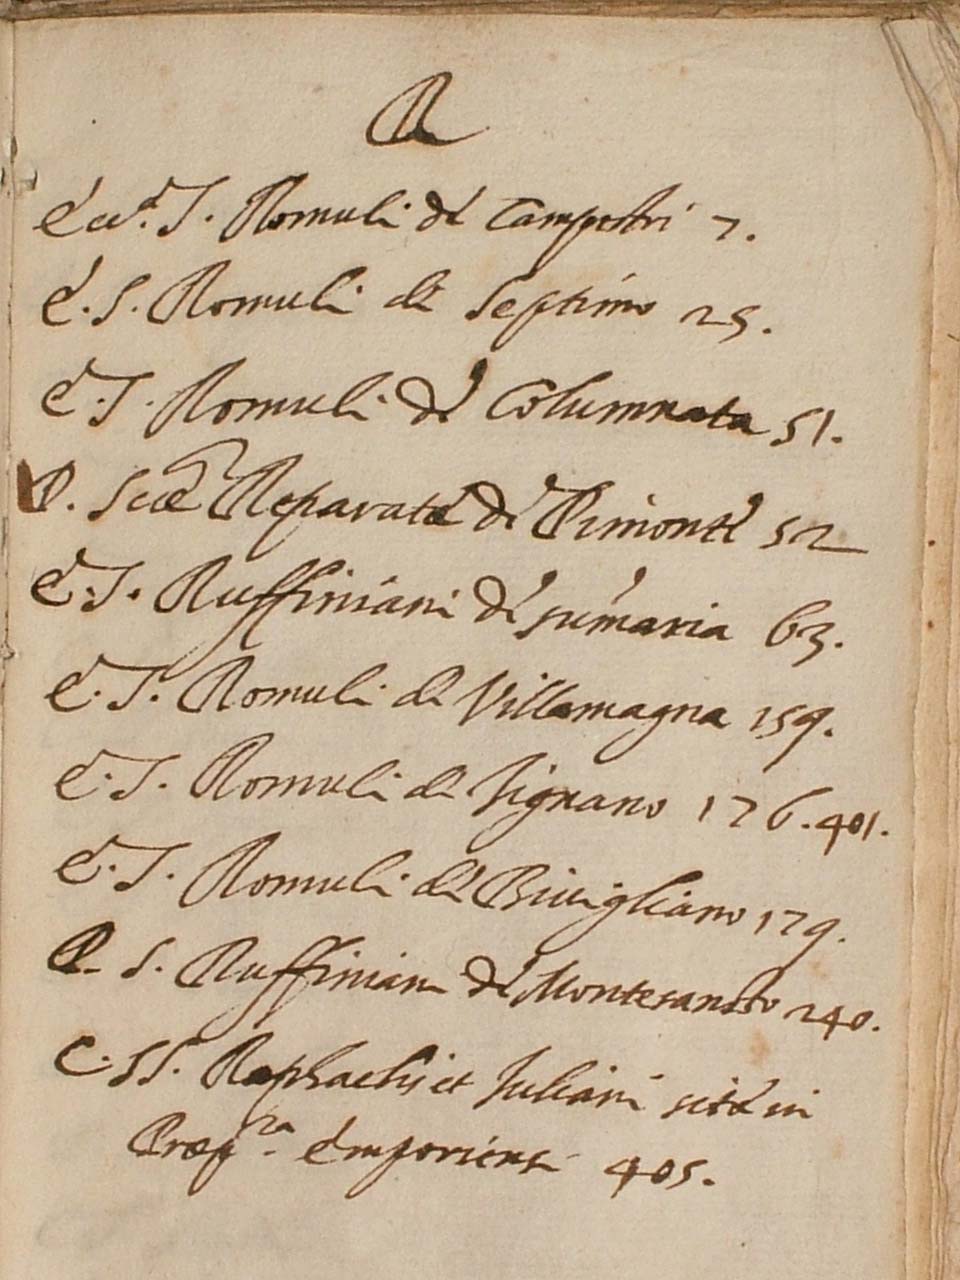 R
Eccl.ª S. Romuli de Campestri 7.
E. S. Romuli de Septimo 25.
E. S. Romuli de Columnata 51.
P. Scæ Reparatæ de Pimonte 52
E. S. Ruffiniani de 63.
E. S. Romuli de Villamagna 159.
E. S. Romuli de Signano 176. 401.
E. S. Romuli de Bivigliano 179.
P. S. Ruffiniani de Montesancto 240.
C. SS. Raphaelis et Juliani sitæ in
Præp.ra Emporiensi 405.